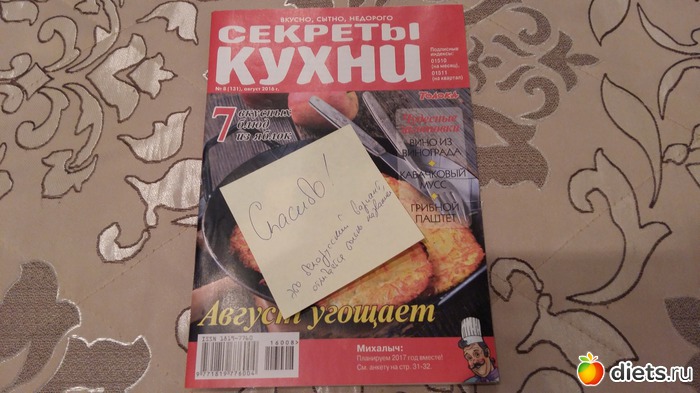 ВКУСНО, СЫТНО, НЕДОРОГО
СЕКРЕТЫ
КУХНИ
№ 8 (131), август 2016 г.
Подписные
индексы:
01510
(на месяц),
01511
(на квартал)
Толока
7 вкусных
блюд
из яблок
ВИНО ИЗ
ВИНОГРАДА
+
КАБАЧКОВЫЙ
МУСС
+
ГРИБНОЙ
ПАШТЕТ
Спасибо!
это белорусский вариант,
Август угощает
ISSN 1819-7760
16008
9 771819 776004
Михалыч:
Планируем 2017 год вместе!
См. анкету на стр. 31-32.
diets.ru